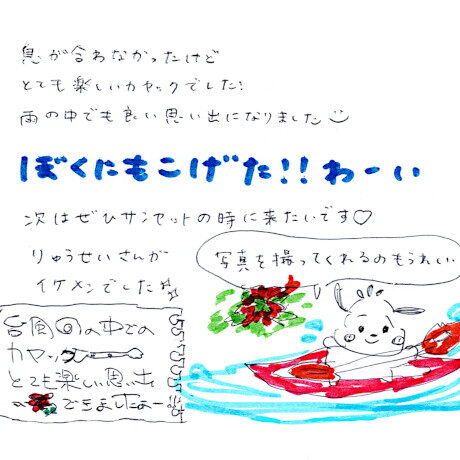 息が合わなかったけど
とても楽しいカヤックでした!
雨の中でも良い思い出になりました
ぼくにもこげた!!わーい
次はぜひサンセットの時に来たいです♡
りゅうせいさんが
イケメンでした
写真を撮ってくれるのもうれしい
台風の中での
カヤック
とても楽しい思い
できましたよー